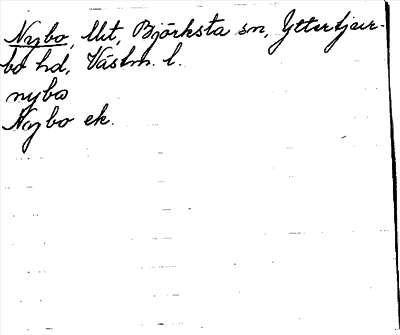 Nybo, llt, Björksta sn, Yttertjur-
bo hd, Västm. l.
nybo
Nybo ek.